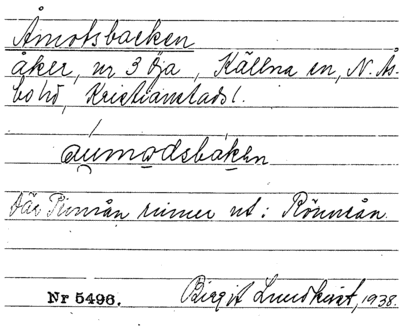 Åmotsbacken
åker, nr 3 Öja, Källna sn, N. Ås-
bo hd, Kristianstads l.
aumodsbakən
där Pinnån rinner ut i Rönneån.
Nr 5496. Birgit Lundkvist, 1938.